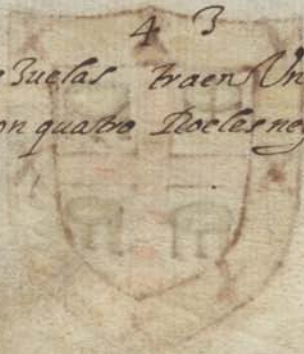 43
zuelas traen Un
on quatro Roeles neg